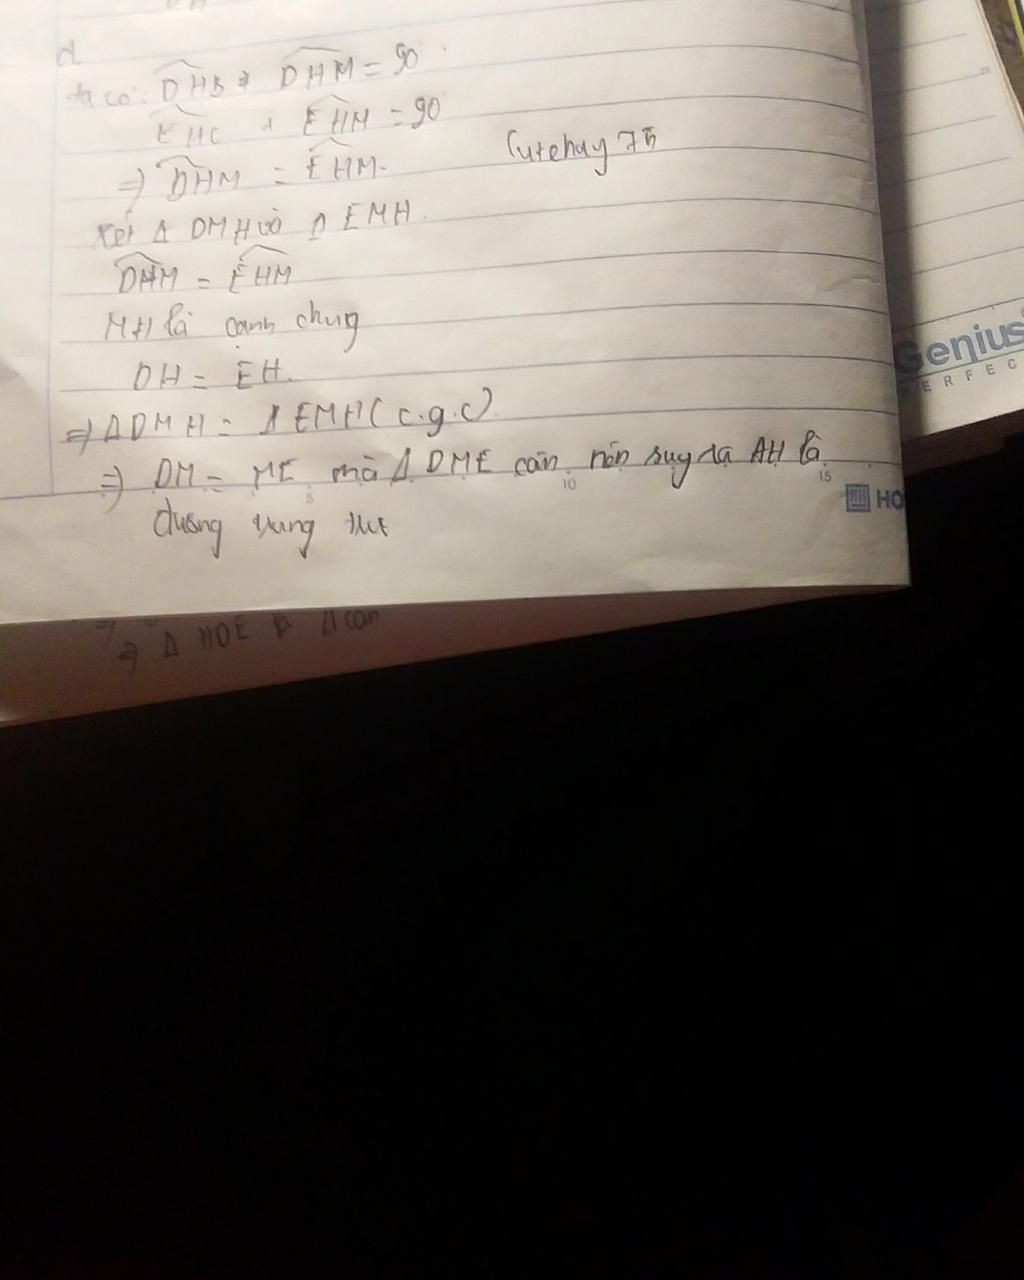 d
ta có: DHB + DHM = 90
EHC + EHM = 90
⇒ DHM = EHM.
Cutehay 75
Xét Δ DMH và Δ EMH.
DHM = EHM
MH là cạnh chung
DH = EH.
⇒ Δ DMH = Δ EMH (c.g.c)
⇒ DM = ME mà Δ DME cân nên suy ra AH là
đường trung trực
5
10
15
HO
⇒ Δ HDE là Δ cân
20
Genius
ERFEC